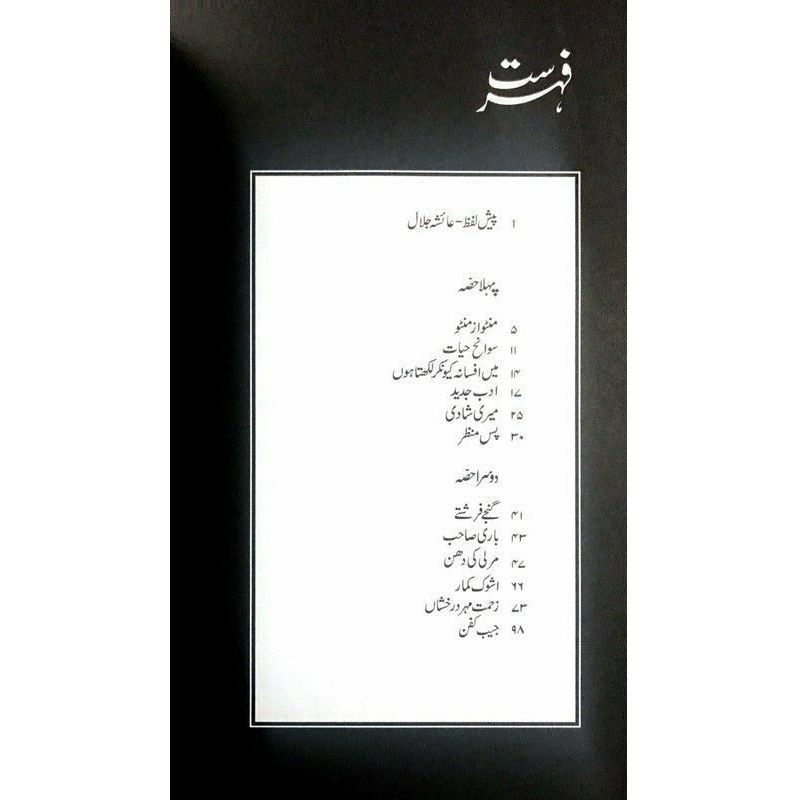 فہرست
۱ پیش لفظ - عائشہ جلال
پہلا حصّہ
۵ منٹو از منٹو
۱۱ سوانح حیات
۱۴ میں افسانہ کیونکر لکھتا ہوں
۱۷ ادب جدید
۲۵ میری شادی
۳۰ پس منظر
دوسرا حصّہ
۴۱ گنجے فرشتے
۴۳ باری صاحب
۴۷ مرلی کی دھن
۶۶ اشوک کمار
۷۳ زحمت مہر درخشاں
۹۸ جیب کفن